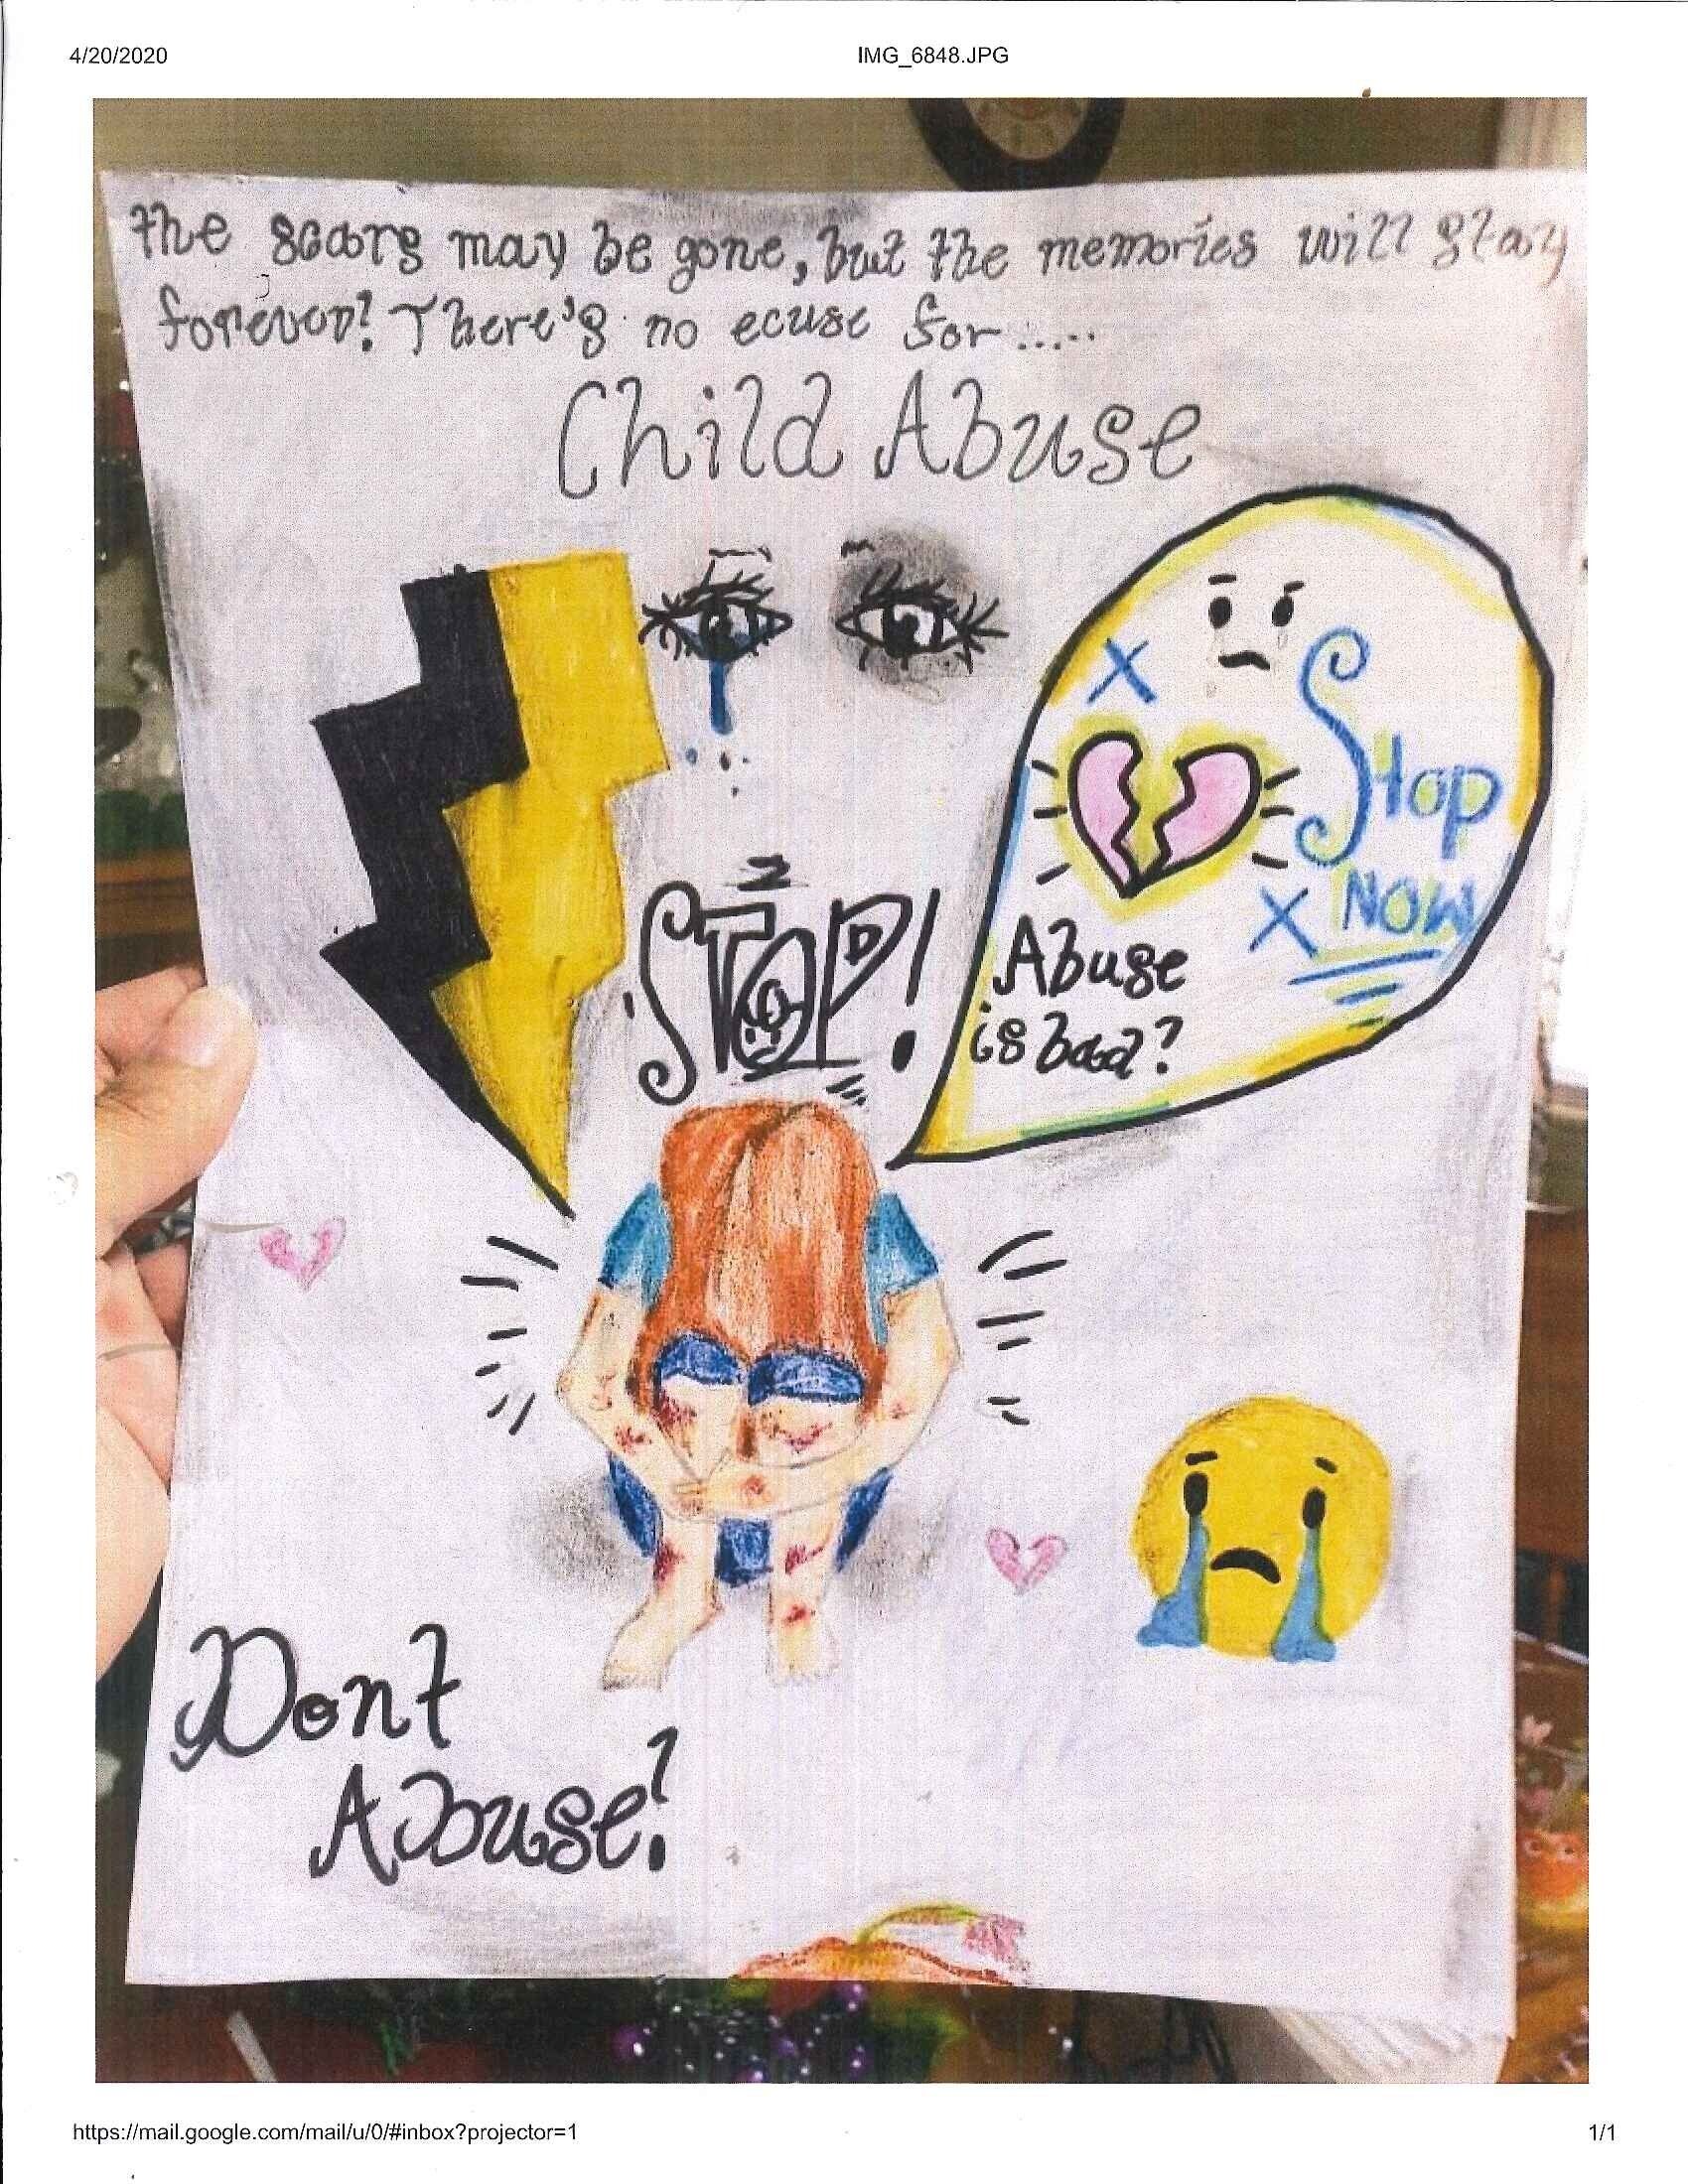 4/20/2020
IMG_6848.JPG
the scars may be gone, but the memories will stay
forever! There's no ecuse for.....
Child Abuse
STOP!
X
Stop
X NOW
Abuse
is bad?
Dont
Abuse!
https://mail.google.com/mail/u/0/#inbox?projector=1
1/1